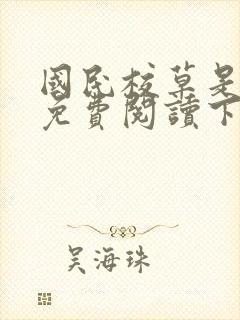 國民校草是
免費閱讀下
吴海珠